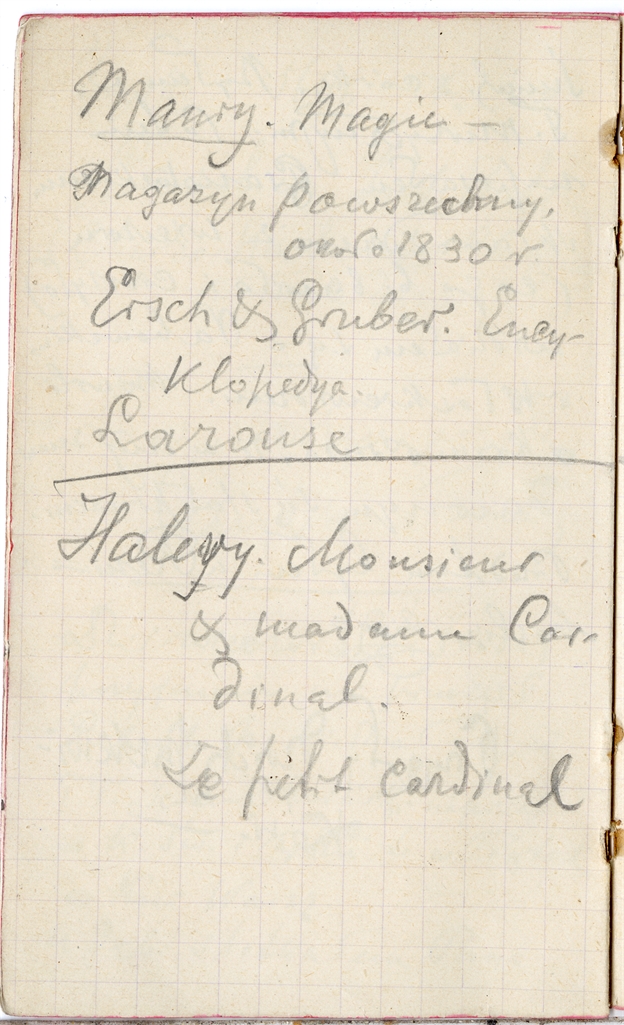 Maury. Magie —
Magazyn powszechny,
około 1830 r
Ersch & Gruber. Ency-
klopedya.
Larouse
Halevy. Monsieur
& madame Car-
dinal.
Le petit cardinal